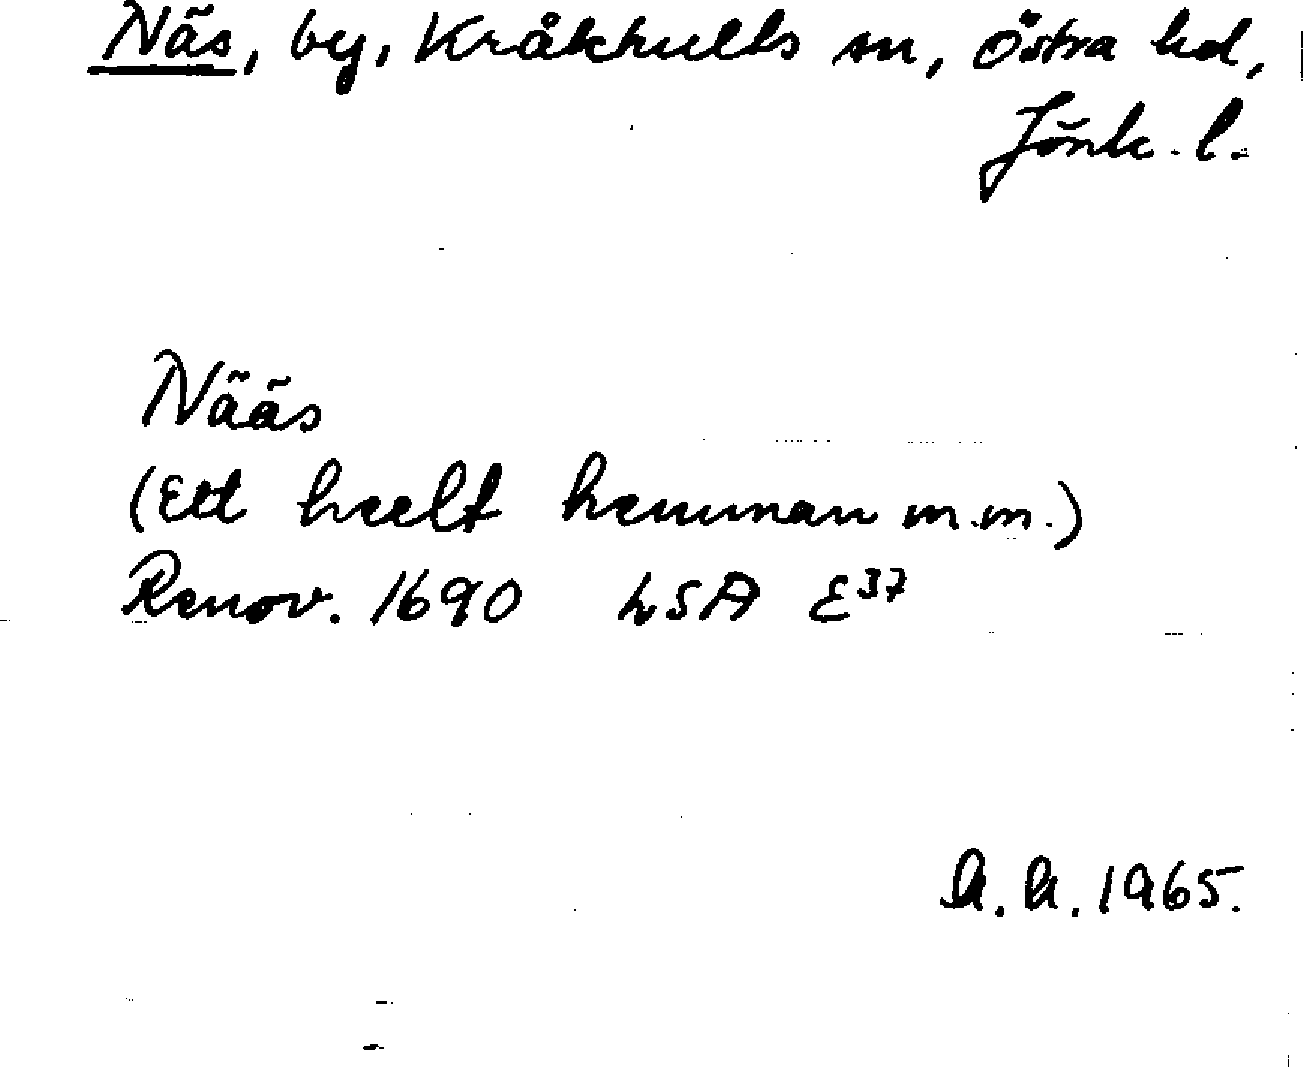 Näs, by, Kråkhults sn, Östra hd,
Jönk. l.
Nääs
(Ett heelt hemman m.m.)
Renov. 1690 LSA E37
A. A. 1965.